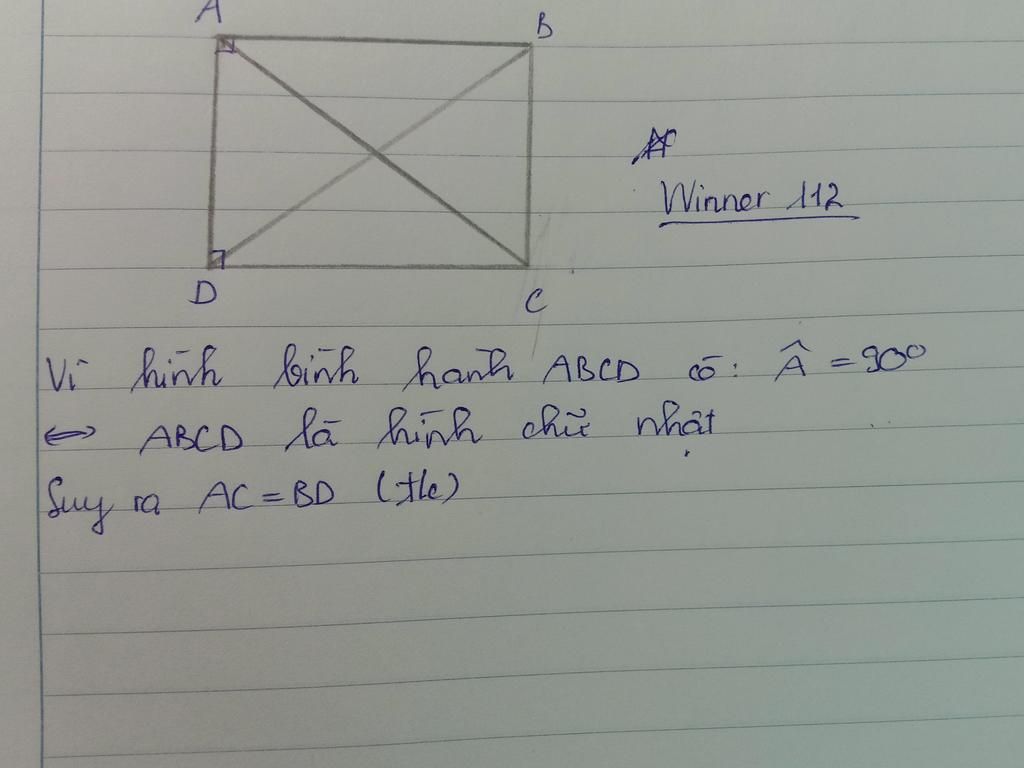 A
B
Winner 112
D
C
Vì hình bình hành ABCD có: Â = 90°
<=> ABCD là hình chữ nhật
Suy ra AC = BD (t/c)